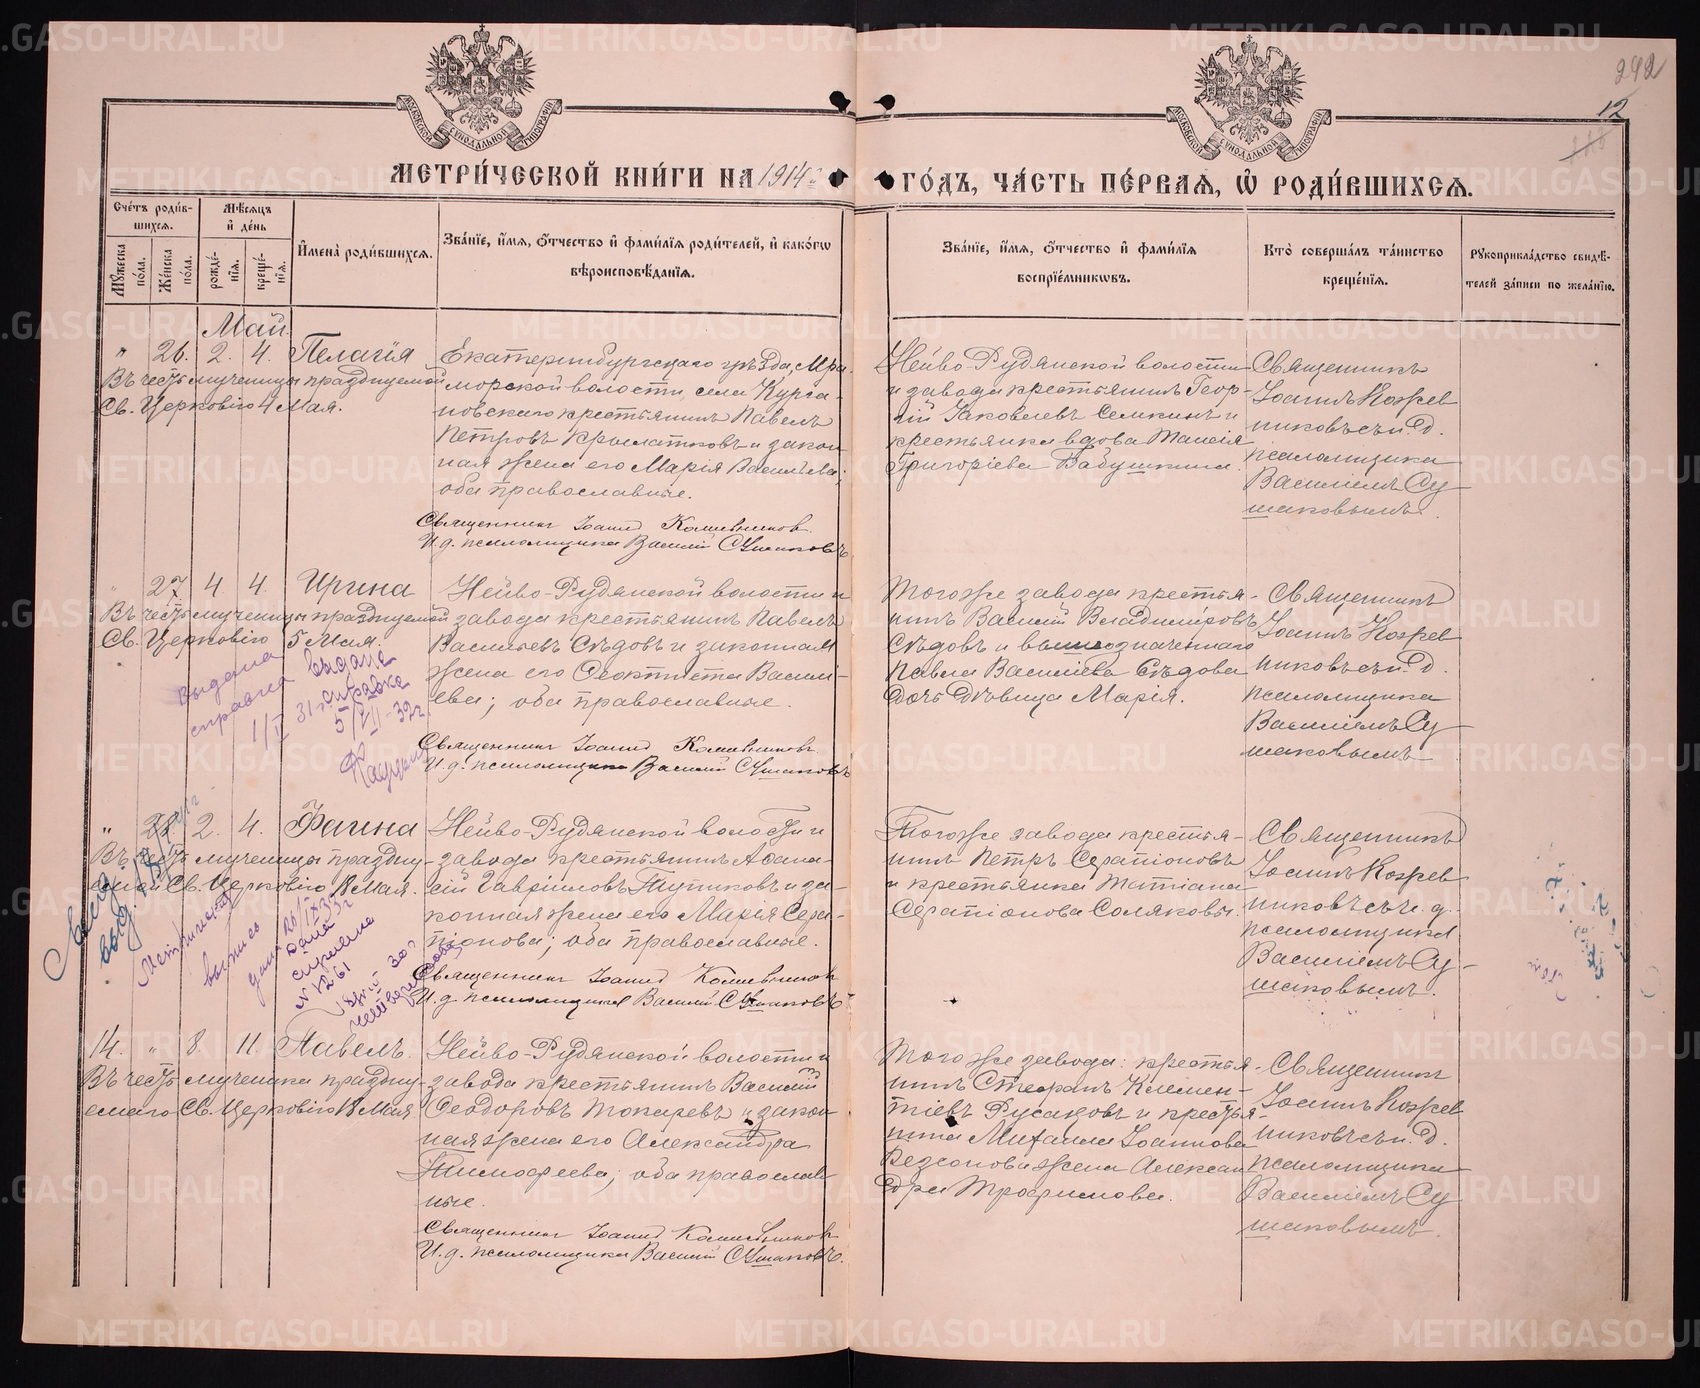 242
12
МОСКОВСКОЙ СѴНОДАЛЬНОЙ ТИПОГРАФІИ
МОСКОВСКОЙ СѴНОДАЛЬНОЙ ТИПОГРАФІИ
МЕТРИ́ЧЕСКОЙ КНИ́ГИ НА 1914 г. ГО́ДЪ, ЧА́СТЬ ПЕ́РВАЯ, Ѡ РОДИ́ВШИХСЯ.
Сче́тъ роди́в-
шихся.
Мѣ́сяцъ
и де́нь
Му́жеска
по́ла.
Же́нска
по́ла.
рожде́-
нія.
креще́-
нія.
Имена̀ роди́вшихся.
Зва́ніе, и́мя, о́тчество и фами́лія роди́телей, и како́гѡ
вѣроисповѣ́данія.
Зва́ніе, и́мя, о́тчество и фами́лія
воспріе́мникѡвъ.
Кто̀ соверша́лъ та́инство
креще́нія.
Рукоприкла́дство свидѣ́-
телей за́писи по жела́нію.
Май
" 26. 2. 4. Пелагія
Въ честь мученицы празднуемой
Св. Церковію 4 Мая.
Екатеринбургскаго уѣзда, Мра-
морской волости, села Курга-
новскаго крестьянинъ Павелъ
Петровъ Крылатковъ и закон
ная жена его Марія Васильева;
оба православные.
Священникъ Іоаннъ Кожевниковъ.
И. д. псаломщика Василій Сушаковъ.
Нейво-Рудянской волости
и завода крестьянинъ Геор-
гій Іаковлевъ Семкинъ и
крестьянка вдова Таисія
Григоріева Бабушкина.
Священникъ
Іоаннъ Кожев
никовъ съ и. д.
псаломщика
Василіемъ Су
шаковымъ.
" 27 4 4. Ирина
Въ честь мученицы празднуемой
Св. Церковію 5 Мая.
Выдана
справка
1/II 31 г.
выдана
справка
5/VII-32 г.
Нейво-Рудянской волости и
завода крестьянинъ Павелъ
Васильевъ Сѣдовъ и законная
жена его Феоктиста Василь-
ева; оба православные.
Священникъ Іоаннъ Кожевниковъ.
И. д. псаломщика Василій Сушаковъ
Тогоже завода крестья-
нинъ Василій Владиміровъ
Сѣдовъ и вышеозначеннаго
Павла Васильева Сѣдова
дочь дѣвица Марія.
Священникъ
Іоаннъ Кожев
никовъ съ и. д.
псаломщика
Василіемъ Су
шаковымъ.
" 28. 2. 4. Фаина
Въ честь мученицы праздну-
емой Св. Церковію 18 Мая.
Метрическая
выпись
дана
дана
справка
№ 1261
Нейво-Рудянской волости и
завода крестьянинъ Афана-
сій Гавріиловъ Тупиковъ и за-
конная жена его Марія Сера-
піонова; оба православные.
Священникъ Іоаннъ Кожевников
И. д. псаломщика Василій Сушаковъ
Тогоже завода крестья-
нинъ Петръ Серапіоновъ
и крестьянка Татіана
Серапіонова Соляковы.
Священникъ
Іоаннъ Кожев
никовъ съ и. д.
псаломщика
Василіемъ Су-
шаковымъ.
14. " 8. 11. Павелъ.
Въ честь мученика праздну-
емаго Св. Церковію 18 Мая
Нейво-Рудянской волости и
завода крестьянинъ Василій
Феодоровъ Токаревъ и закон
ная жена его Александра
Тимофеева; оба православ-
ные.
Священникъ Іоаннъ Кожевников
И. д. псаломщика Василій Сушаковъ.
Того же завода: крестья-
нинъ Стефанъ Климен-
тіевъ Русаковъ и крестья-
нина Михаила Іоаннова
жена Алексан
дра Трофимова.
Священникъ
Іоаннъ Кожев
никовъ съ и. д.
псаломщика
Василіемъ Су
шаковымъ.
METRIKI.GASO-URAL.RU